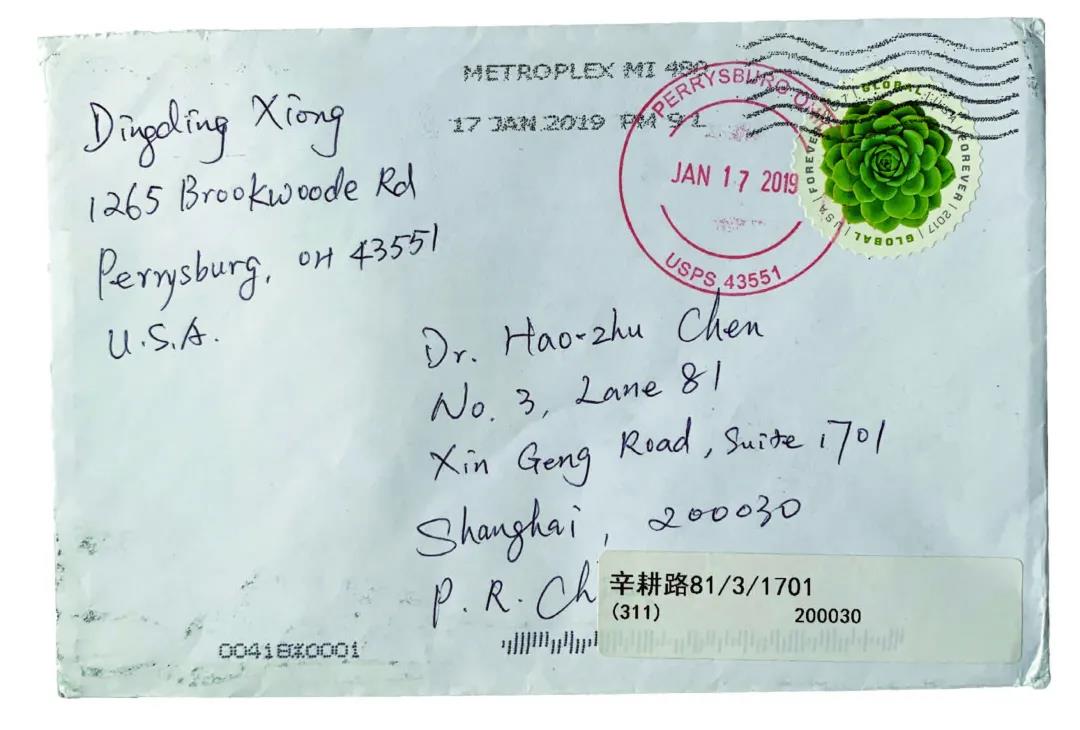 METROPLEX MI 480
17 JAN 2019 PM 9 L
PERRYSBURG OH
JAN 17 2019
USPS 43551
GLOBAL | USA | FOREVER | 2017 | GLOBAL | USA | FOREVER
Dingding Xiong
1265 Brookwoode Rd
Perrysburg, OH 43551
U.S.A.
Dr. Hao-zhu Chen
No. 3, Lane 81
Xin Geng Road, Suite 1701
Shanghai, 200030
P. R. Ch
辛耕路81/3/1701
(311) 200030